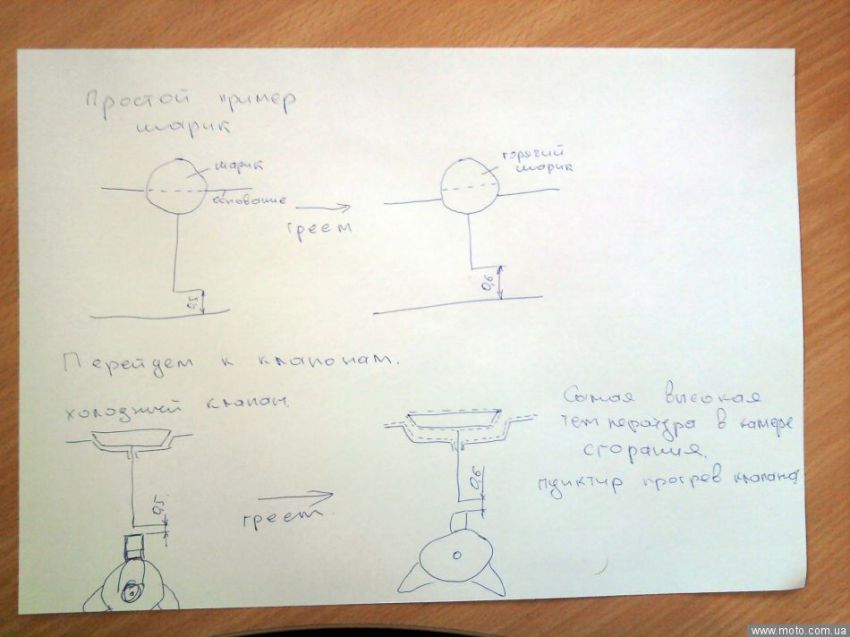 Простой пример
шарик
шарик
основание
греем
горячий
шарик
0,5
0,6
Перейдем к клапонам.
холодный клапан.
Самая высокая
температура в камере
сгорания.
пунктир прогрев клапана
0,5
0,6
греем.
www.moto.com.ua